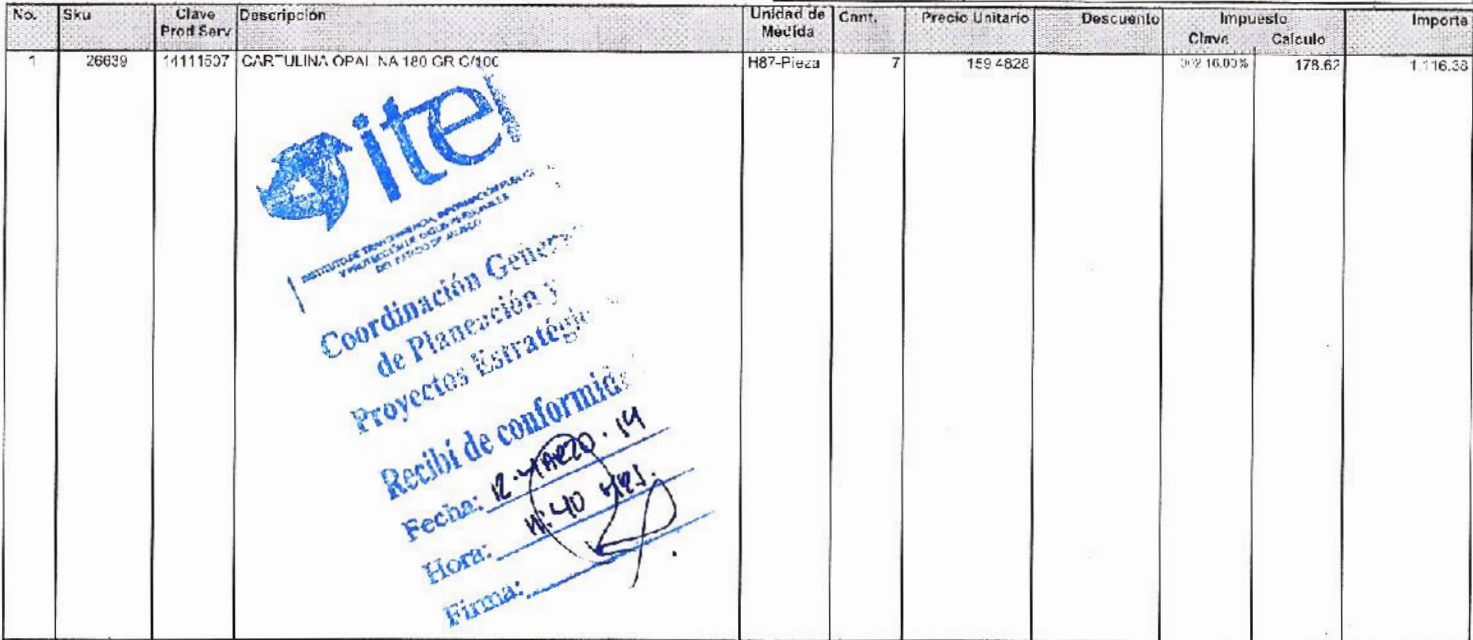 No. Sku Clave Prod Serv Descripción Unidad de Medida Cant. Precio Unitario Descuento Impuesto Clave Calculo Importe
1 26639 14111507 CARTULINA OPALINA 180 GR C/100 H87-Pieza 7 159.4828 002 16.00% 178.62 1,116.38
itei
INSTITUTO DE TRANSPARENCIA, INFORMACIÓN PÚBLICA
Y PROTECCIÓN DE DATOS PERSONALES
DEL ESTADO DE JALISCO
Coordinación General
de Planeación y
Proyectos Estratégic
Recibí de conformida
Fecha: 12·MARZO·19
Hora: 11:40 HRS.
Firma: